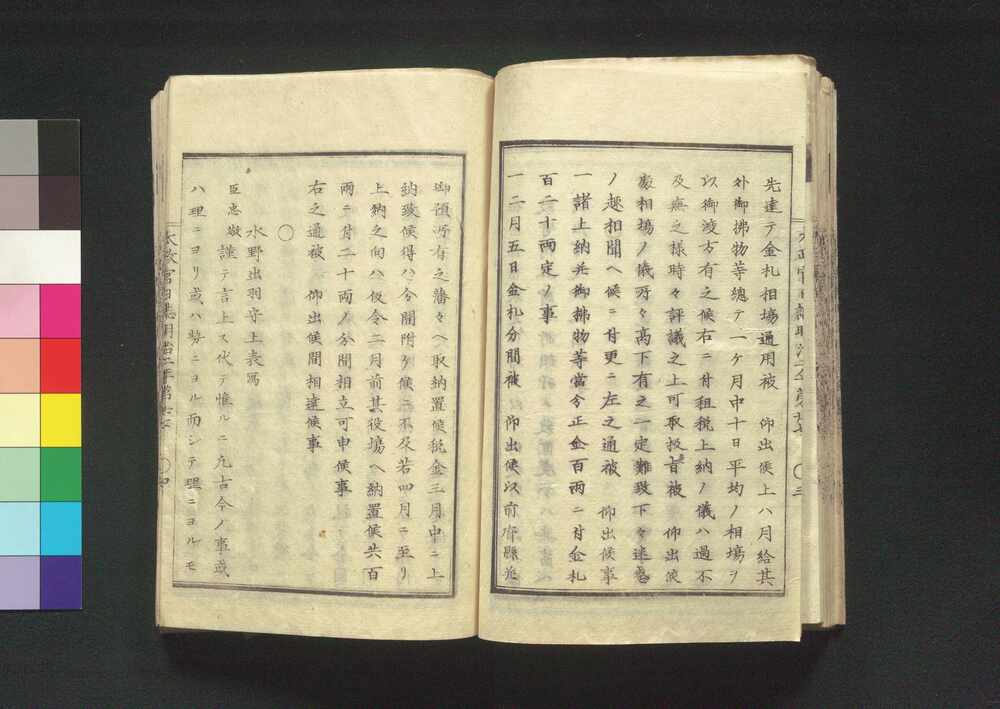 先達テ金札相場通用被　仰出候上ハ月給其
外御拂物等總テ一ケ月中十日平均ノ相場ヲ
以御渡方有之候右ニ付租税上納ノ儀ハ過不
及無之様時々評議之上可取扱旨被　仰出候
處相場ノ儀所々高下有之一定難致下々迷惑
ノ趣相聞ヘ候ニ付更ニ左之通被　仰出候事
一諸上納並御拂物等當今正金百兩ニ付金札
百二十兩定ノ事
一二月五日金札分間被　仰出候以前府縣並
御預所有之藩々ヘ取納置候税金三月中ニ上
納致候得ハ分間附ケ候ニ不及若四月ニ至リ
上納之向ハ仮令二月前其役場ヘ納置候共百
兩ニ付二十兩ノ分間相立可申候事
右之通被　仰出候間相達候事
〇
水野出羽守上表寫
臣忠敬謹テ言上ス代テ惟ルニ凡古今ノ事或
ハ理ニヨリ或ハ勢ニヨル而シテ理ニヨルモ
太政官日誌明治二年第廿七
〇四
〇三